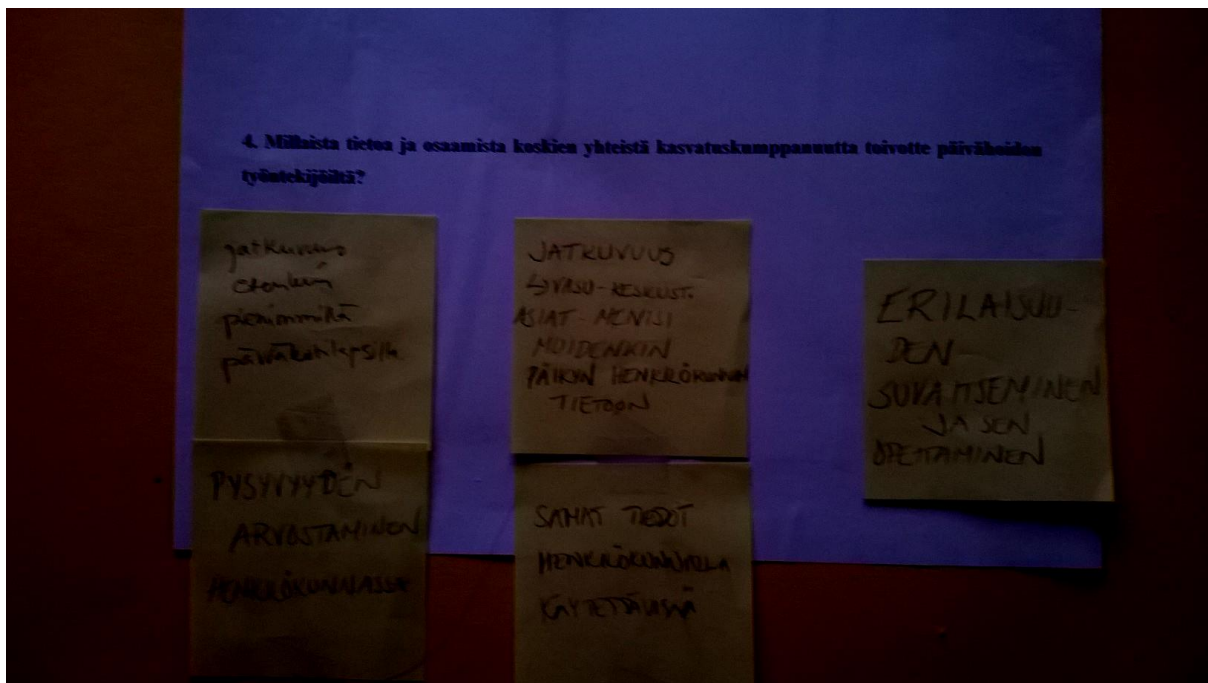 4. Millaista tietoa ja osaamista koskien yhteistä kasvatuskumppanuutta toivotte päivähoidon
työntekijöiltä?
jatkuvuus
etenkin
pienimmillä
päiväkotilapsilla
PYSYVYYDEN
ARVOSTAMINEN
HENKILÖKUNNASSA
JATKUVUUS
↳ VASU-KESKUST.
ASIAT - MENISI
MUIDENKIN
PÄIKYN HENKILÖKUNNAN
TIETOON
SAMAT TIEDOT
HENKILÖKUNNALLA
KÄYTETTÄVISSÄ
ERILAISUU-
DEN
SUVAITSEMINEN
JA SEN
OPETTAMINEN